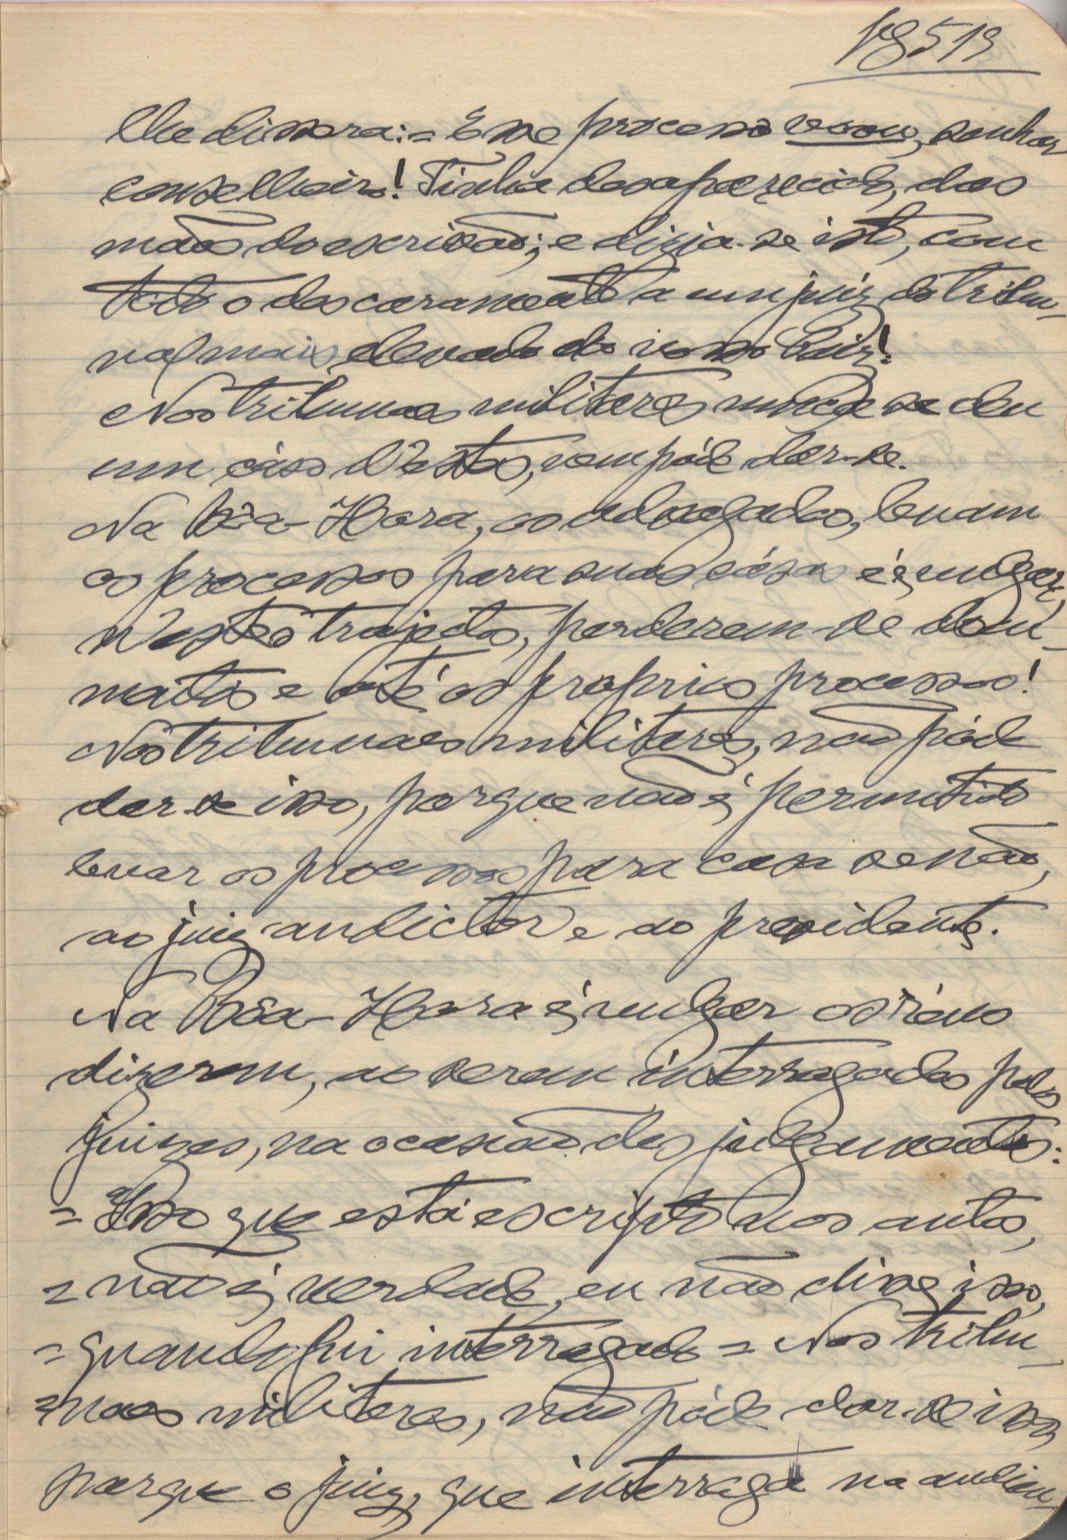 Pg 519
lhe dissera: = Esse processo voou, senhor
conselheiro! Tinha desaparecido, das
mãos do escrivão; e dizia-se isto, com
todo o descaramento a um juiz do tribu-
nal mais elevado do nosso Paiz!
Nos tribunaes militares nunca se deu
um cáso d'estes, nem póde dar-se.
Na Bôa-Hora, os advogados, levam
os processos para suas cásas e é vulgar,
n'estes trajectos, perderem-se docu-
mentos e até os proprios processos!
Nos tribunaes militares, não póde
dar-se isso, porque não é permitido
levar os processos para casa senão,
ao juiz auditor e ao presidente.
Na Bôa-Hora é vulgar os réus
dizerem, ao serem interrogados pelos
juizes, na ocasião dos julgamentos:
= Isso que está escripto nos autos,
= não é verdade, eu não disse isso,
= quando fui interrogado = Nos tribu-
=naes militares, não póde dar-se isso,
porque o juiz, que interroga na audien-